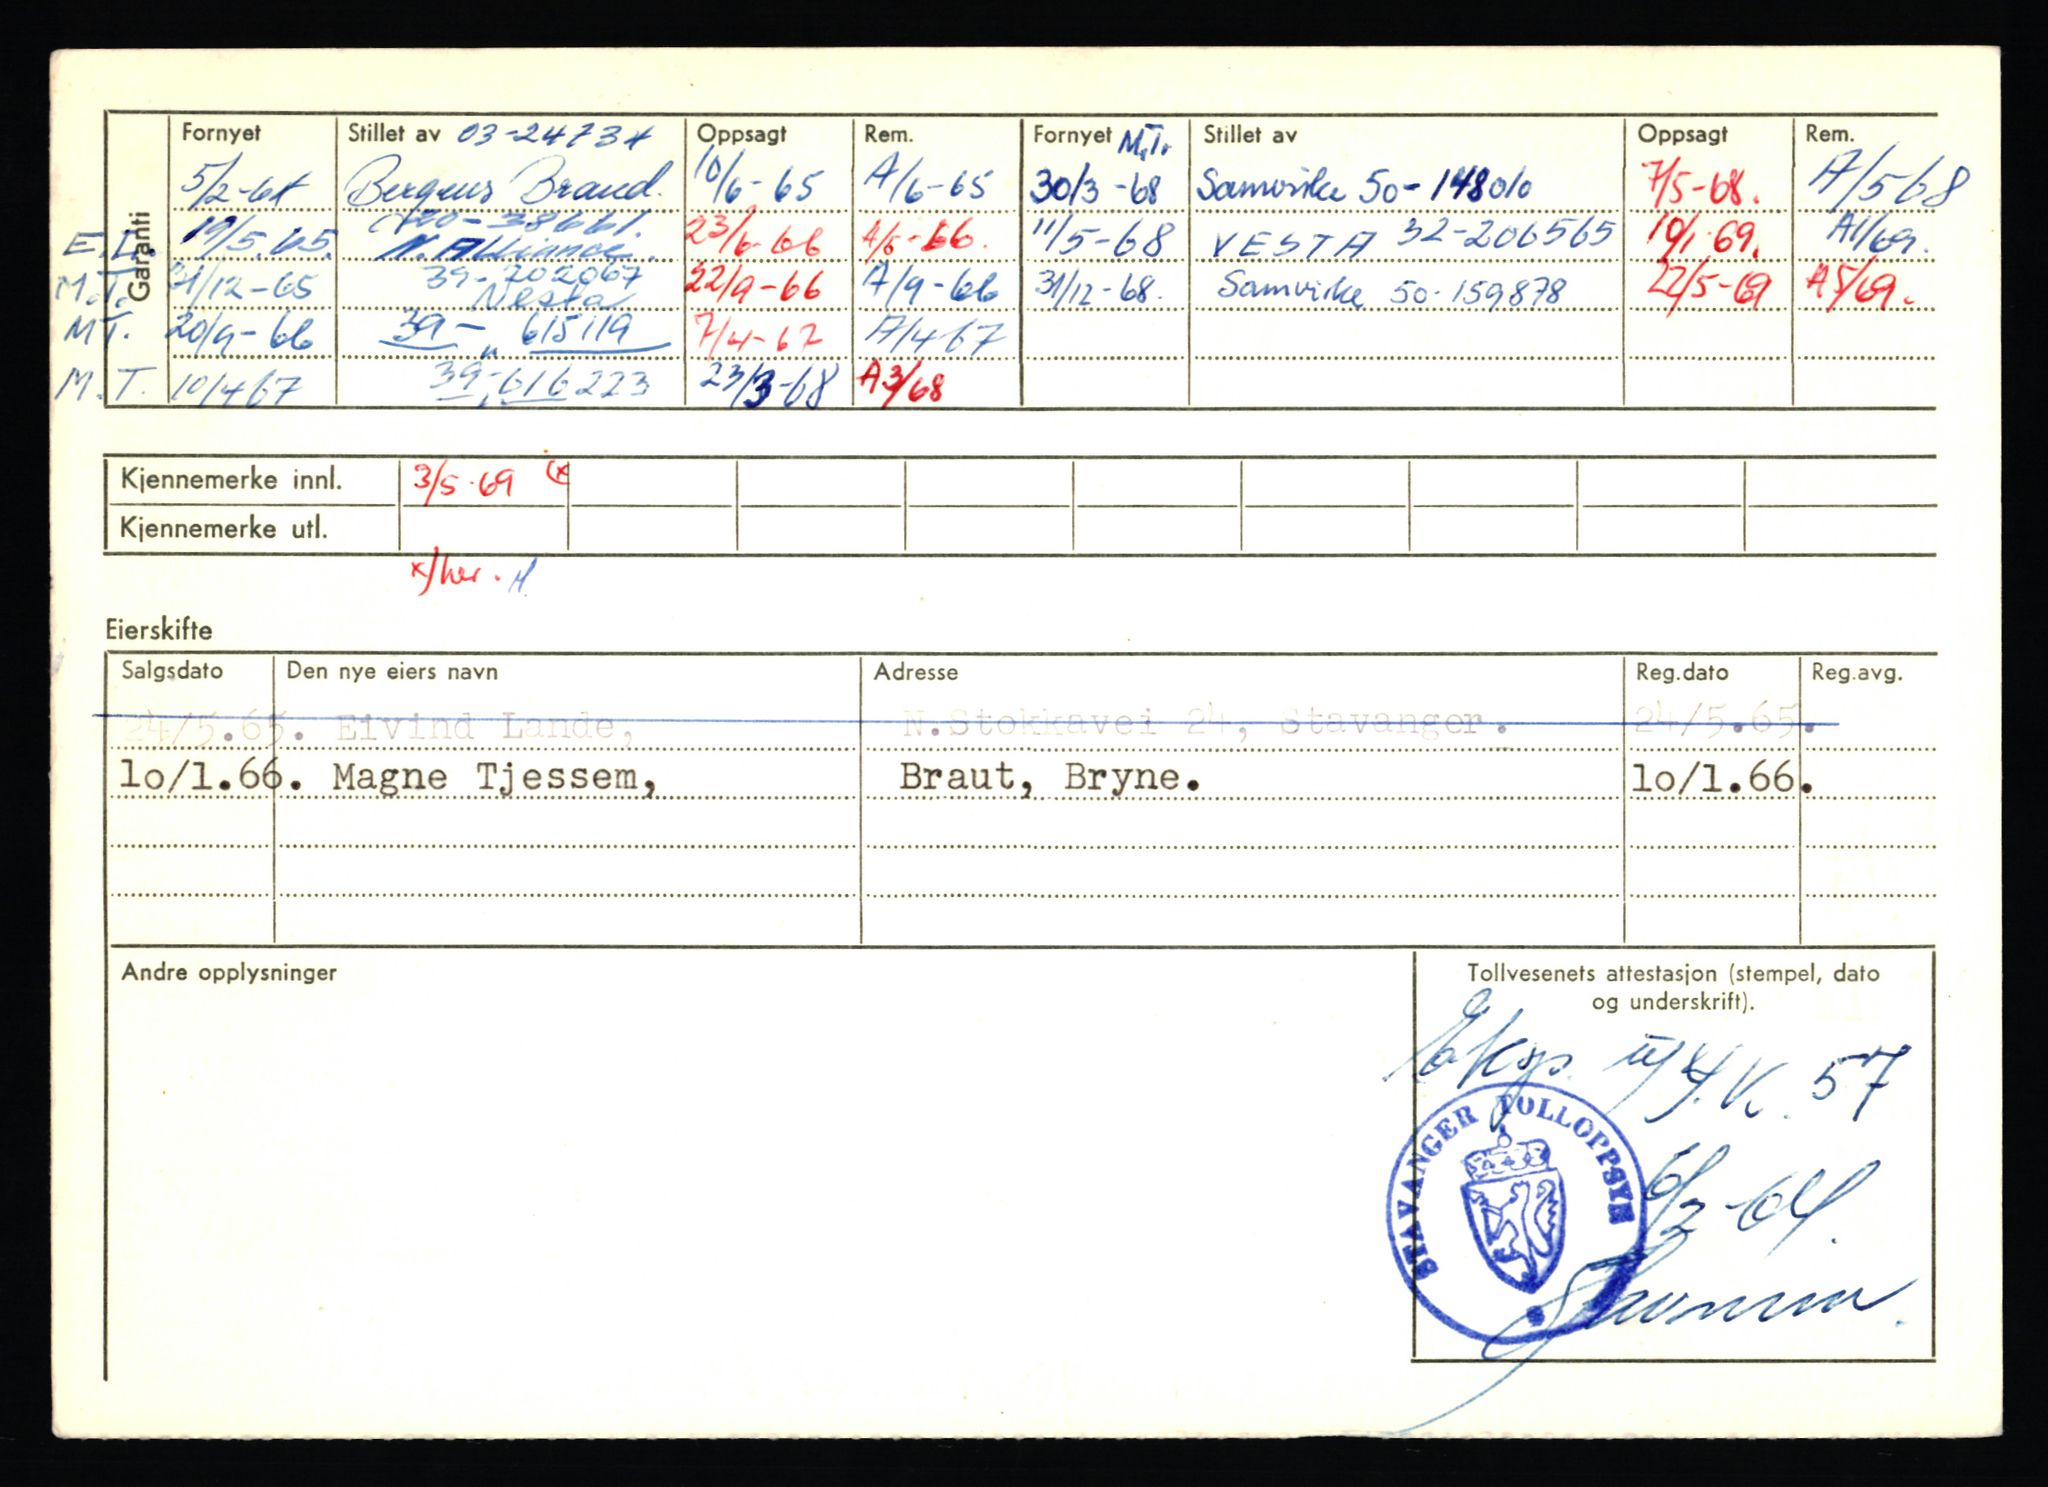 Garanti
Fornyet Stillet av 03-24734 Oppsagt Rem. Fornyet M.T. Stillet av Oppsagt Rem.
5/2-64 Bergens Brand. 10/6-65 A/6-65 30/3-68 Samvirke 50-148010 7/5-68. A/5 68
E.L. 19/5.65. 38661. N. Alliance. 23/6-66 A/6-66. 11/5-68 VESTA 32-206565 10/1-69. A1/69.
M.T. 31/12-65 39-202067 Vesta 22/9-66 A/9-66 31/12-68. Samvirke 50-159878 22/5-69 A5/69.
M.T. 20/9-66 39- 615119 7/4-67 A/4-67
M.T. 10/4 67 39-616223 23/3-68 A3/68
Kjennemerke innl. 3/5-69 (x
Kjennemerke utl.
x/her.
Eierskifte
Salgsdato Den nye eiers navn Adresse Reg.dato Reg.avg.
24/5.65. Eivind Lande, N.Stokkavei 24, Stavanger. 24/5.65.
lo/1.66. Magne Tjessem, Braut, Bryne. lo/1.66.
Andre opplysninger
Tollvesenets attestasjon (stempel, dato
og underskrift).
Eksp. 57
STAVANGER TOLLOPPSYN
6/2-64.